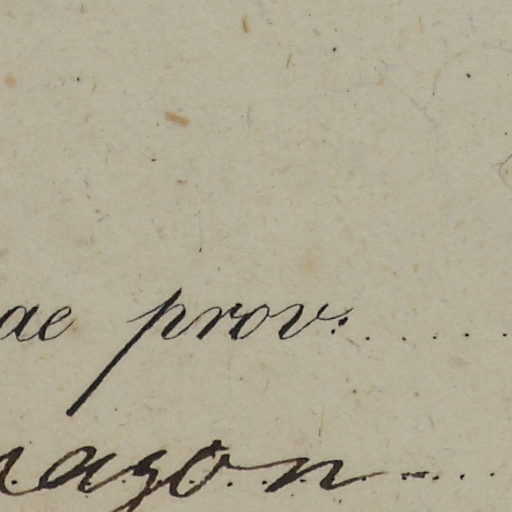 ae prov.
mazon